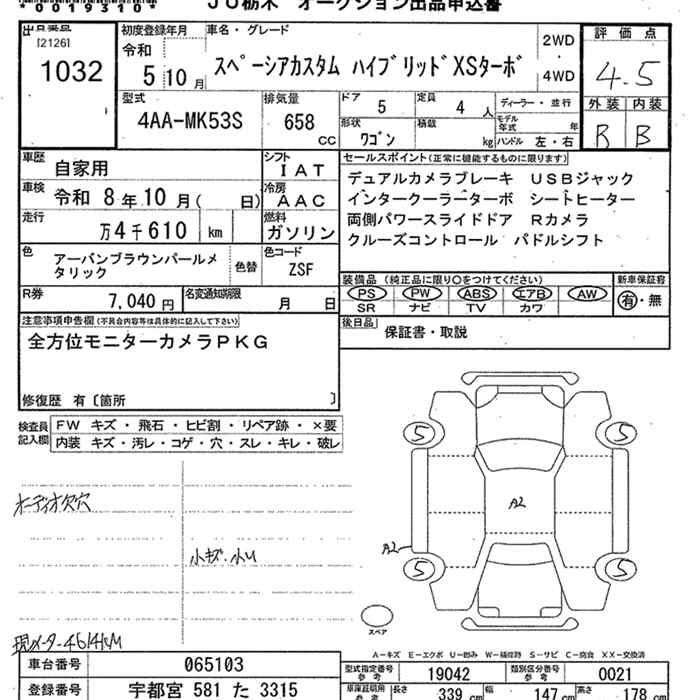 *0019310*
JU栃木 オークション出品申込書
出品番号
[2126]
1032
初度登録年月
令和
5 10月
車名・グレード
スペーシアカスタム ハイブリッドXSターボ
2WD
4WD
評価点
4.5
外装 内装
R B
型式
4AA-MK53S
排気量
658
CC
ドア 5
定員 4 人
ディーラー・並行
形状
ワゴン
積載
kg
モデル年式 年
ハンドル 左・右
車歴
自家用
シフト
IAT
車検
令和 8年10月( 日)
冷房
AAC
走行
万4千610 km
燃料
ガソリン
色
アーバンブラウンパールメタリック
色替
色コード
ZSF
R券
7,040円
名変通知期限
月 日
セールスポイント(正常に機能するものに限ります)
デュアルカメラブレーキ USBジャック
インタークーラーターボ シートヒーター
両側パワースライドドア Rカメラ
クルーズコントロール パドルシフト
装備品 (純正品に限り○をつけてください)
PS PW ABS エアB AW
SR ナビ TV カワ
新車保証書
有・無
後日品
保証書・取説
注意事項申告欄(不具合内容等は具体的に記入して下さい)
全方位モニターカメラPKG
修復歴 有〔箇所 〕
検査員記入欄
FW キズ・飛石・ヒビ割・リペア跡・×要
内装 キズ・汚レ・コゲ・穴・スレ・キレ・破レ
オーディオ欠穴
小キズ・小U
現メーター4614KM
5
5
A2
A2
5
5
スペア
A-キズ E-エクボ U-凹み W-補修跡 S-サビ C-腐食 XX-交換済
車台番号
065103
登録番号
宇都宮 581 た 3315
型式指定番号
参考
19042
類別区分番号
参考
0021
車庫証明用
参考
長さ
339 cm
幅
147 cm
高さ
178 cm